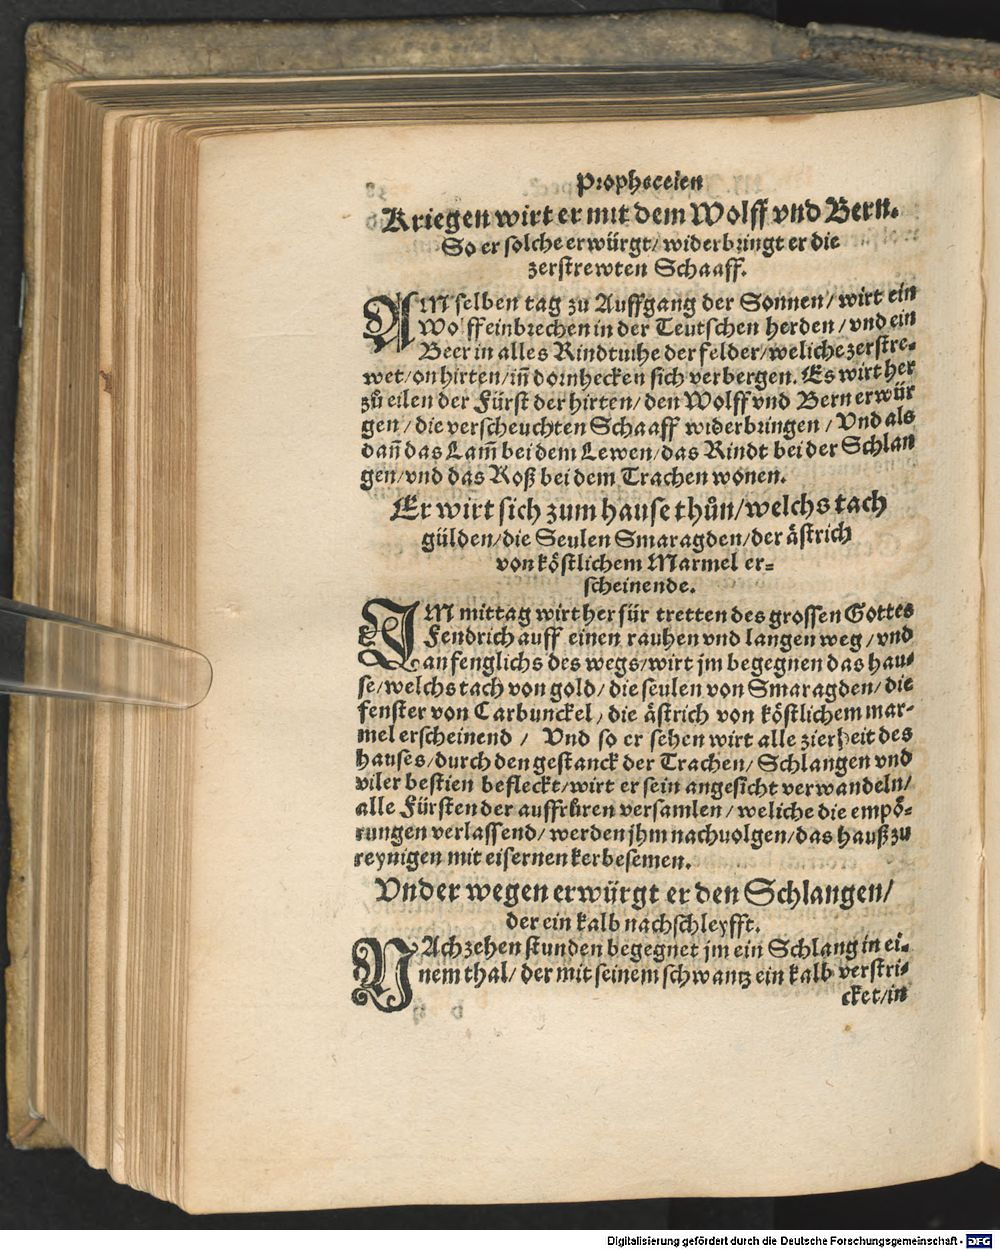 Propheceien
Kriegen wirt er mit dem Wolff vnd Bern.
So er solche erwürgt/ widerbringt er die
zerstrewten Schaaff.
AM selben tag zu Auffgang der Sonnen/ wirt ein
Wolff einbrechen in der Teutschen herden/ vnd ein
Beer in alles Rindtuihe der felder/ weliche zerstre-
wet/ on hirten/ iñ dornhecken sich verbergen. Es wirt her
zů eilen der Fürst der hirten/ den Wolff vnd Bern erwür
gen/ die verscheuchten Schaaff widerbringen/ Vnd als
dañ das Lam̃ bei dem Lewen/ das Rindt bei der Schlan
gen/ vnd das Roß bei dem Trachen wonen.
Er wirt sich zum hause thůn/ welchs tach
gülden/ die Seulen Smaragden/ der åstrich
von köstlichem Marmel er-
scheinende.
IM mittag wirt herfür tretten des grossen Gottes
Fendrich auff einen rauhen vnd langen weg/ vnd
anfenglichs des wegs/ wirt jm begegnen das hau-
se/ welchs tach von gold/ die seulen von Smaragden/ die
fenster von Carbunckel/ die åstrich von köstlichem mar-
mel erscheinend/ Vnd so er sehen wirt alle zierheit des
hauses/ durch den gestanck der Trachen/ Schlangen vnd
viler bestien befleckt/ wirt er sein angesicht verwandeln/
alle Fürsten der auffrůren versamlen/ weliche die empö-
rungen verlassend/ werden jhm nachuolgen/ das hauß zu
reynigen mit eisernen kerbesemen.
Vnder wegen erwürgt er den Schlangen/
der ein kalb nachschleyfft.
NAch zehen stunden begegnet jm ein Schlang in ei-
nem thal/ der mit seinem schwantz ein kalb verstri-
cket/ in
Digitalisierung gefördert durch die Deutsche Forschungsgemeinschaft - DFG